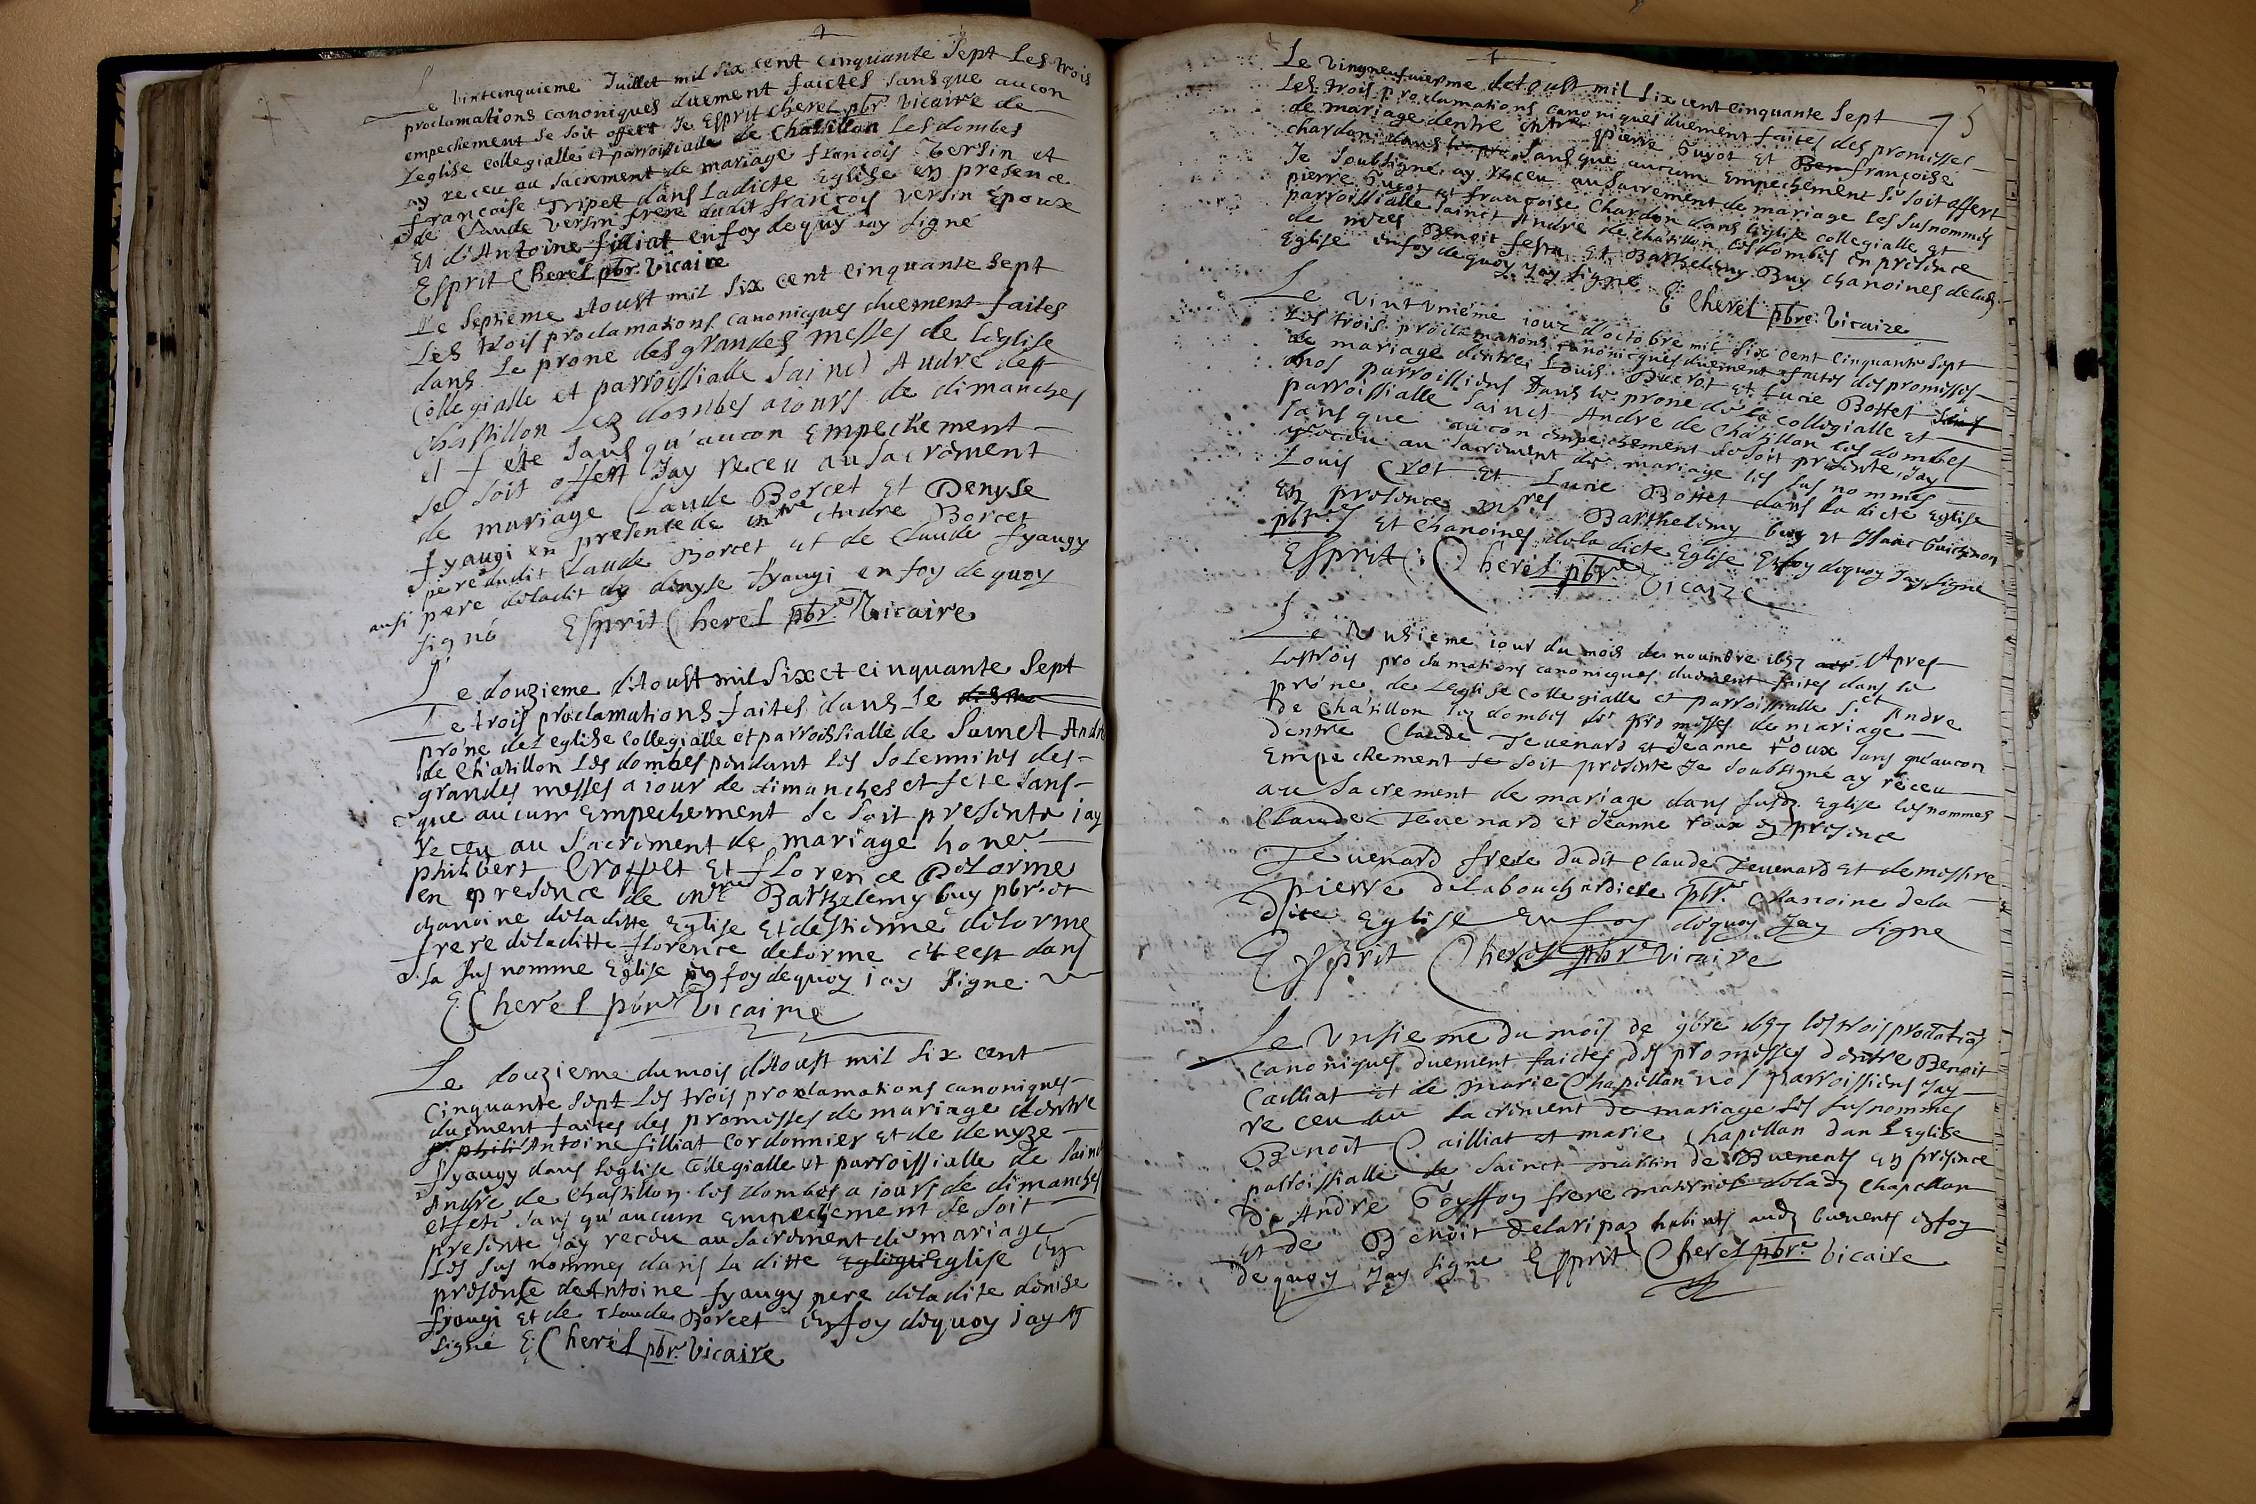 Le vintcinquieme Juillet mil six cent cinquante sept les trois
proclamations canoniques duement faictes sans que aucon
empechement se soit offert Je Esprit Cherel pbr vicaire de
Leglise collegialle et parroissialle de Chatillon les dombes
ay receu au sacrement de mariage françois versin et
françoise Tripet dans Ladicte Eglise en presence
de Claude versin frere dudit françois versin Epoux
Et d'Antoine filliat en foy de quoy Jay signé
Esprit Cherel pbr. vicaire
Le septieme Aoust mil six cent cinquante sept
Les trois proclamations canonicques duement faites
dans Le prone des grandes messes de Leglise
Collegialle et parroissialle Sainct Andre de
chastillon Les dombes a iours de dimanches
et fete sans qu'aucon empechement
se soit offert Jay receu au sacrement
de mariage Claude Borcet et Denyse
fyaugi en presence de mtre Andre Borcet
pere dudit Claude Borcet et de Claude fyaugy
ausi pere deladit denyse fyaugi en foy de quoy
signé Esprit Cherel pbre vicaire
Le douzieme d'Aoust mil six et cinquante sept
Le trois proclamations faites dans le
prone de Leglise collegialle et parroissialle de Sainct Andre
de Chatillon Les dombes pendant les solemnites des
grandes messes a iour de dimanches et fete sans
que aucum empechement se soit presente iay
receu au sacrement de mariage hone
philibert Croppet Et florence Delorme
en presence de mre Barthelemy buy pbr et
chanoine deladitte Eglise Et destienne delorme
frere deladitte florence delorme c'teest dans
la susnomme Eglise en foy dequoy iay signe
E Cherel pbre vicaire
Le douzieme du mois d'Aoust mil six cent
cinquante sept Les trois proclamations canoniques
duement faites des promesses de mariage dentre
phili Antoine filliat Cordonnier et de denyze
fyaugy dans leglise Collegialle et parroissialle de Sainct
Andre de Chastillon les dombes a iours de dimanches
et fete sans qu'aucum empechement se soit
presente Jay receu au sacrement de mariage
les sus nommes dans la ditte Eglise en
presence de Antoine fyaugy pere deladite denise
fyaugi et de Claude Borcet en foy dequoy iay
signé E Cherel pbr. vicaire
75
Le vingneufuiesme detoust mil six cent cinquante sept
Les trois proclamations canoniques duement faites des promesses
de mariage dentre pierre Guyot et Ben françoise
chardon dans sans que aucum empechement se soit offert
Je soubsigné ay receu au sacrement de mariage les susnommés
pierre Guyot et françoise Chardon dans leglise collegialle et
parroissialle Sainct Andre de Chatillon les dombes en presence
de mres Benoit et Barthelemy Buy chanoines deladi
Eglise en foy dequoy Jay signe E Cherel pbre. vicaire
Le vintunieme iour d'octobre mil six cent cinquante sept
Les trois proclamations canonicques duement faites des promesses
de mariage dentre Louis Crot et Lucie Bottet
nos parroissiens dans le prone de la collegialle et
parroissialle Sainct André de Chatillon les dombes
sans que aucon empechement se soit presente, Jay
receu au sacrement de mariage les sus nommes
Louis Crot et Lucie Bottet dans la dicte Eglise
en presence mres Barthelemy buy et Isaac Guichenon
pbres Et Chanoines deladicte Eglise En foy dequoy Jay signe
Esprit Cherel pbr vicaire
Le unsieme iour du mois de nouembre 1657 Apres
Les trois proclamations canonicques duement faites dans le
prône de Leglise collegialle et parroissialle St Andre
de Chatillon les dombes des promesses de mariage
dentre Claude Teuenard et Jeanne roux sans qu'aucon
empechement se soit presente Je soubsigné ay receu
au sacrement de mariage dans susd Eglise les nommes
Claude Teuenard et Jeanne roux en presence
Teuenard frere dudit Claude Teuenard et de messire
pierre delabouchardiere pbr. Chanoine dela
dite Eglise En foy dequoy Jay signe
Esprit Cherel pbre vicaire
Le unsieme du mois de 9bre 1657 les trois proclatios
canoniques duement faictes des promesses dentre Benoit
Cailliat et de Marie Chapillan nos parroissiens Jay
receu au sacrement de mariage les susnommes
Benoit Cailliat et marie Chapillan dan Leglise
parroissialle de Sainct martin de Buenents en presence
De Andre Goyffon frere maternel delad Chapellan
et de Benoit delaripaz habints aud buenents en foy
de quoy Jay signe Esprit Cherel pbr. vicaire